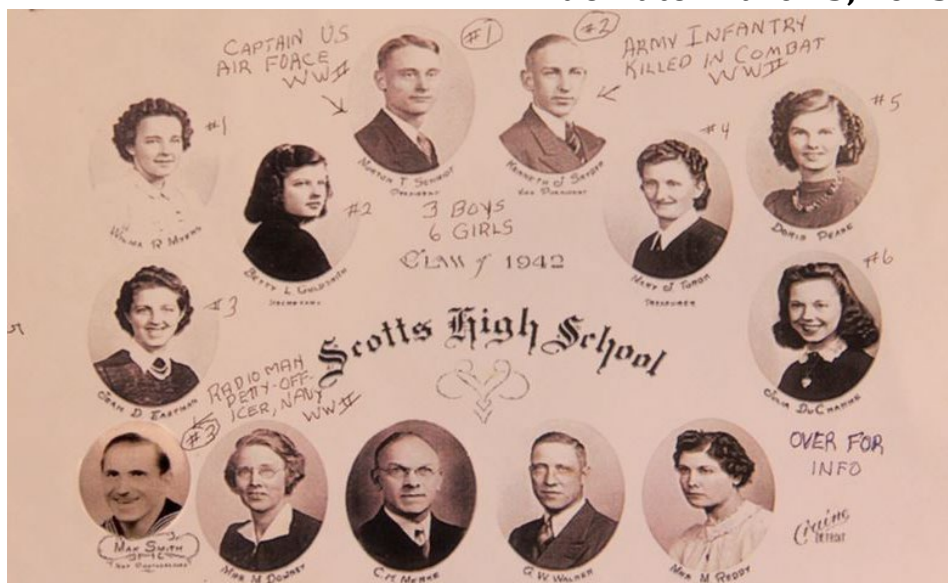 CAPTAIN U.S
AIR FORCE
WWII
#1
#2
ARMY INFANTRY
KILLED IN COMBAT
WWII
#1
Wilma R Myers
Morton T Schmidt
President
Kenneth J Snyder
Vice President
#5
Doris Pease
#2
Betty L Goldsmith
Secretary
3 BOYS
6 GIRLS
Class of 1942
#4
Mary J Tuma
Treasurer
#3
Jean D. Eastman
Scotts High School
#6
Julia DuCharme
RADIO MAN
PETTY-OFF-
ICER, NAVY
WWII
#3
Max Smith
Mrs M. Downey
C.M.
G. W. Walker
Mrs M. Reddy
OVER FOR
INFO
Detroit